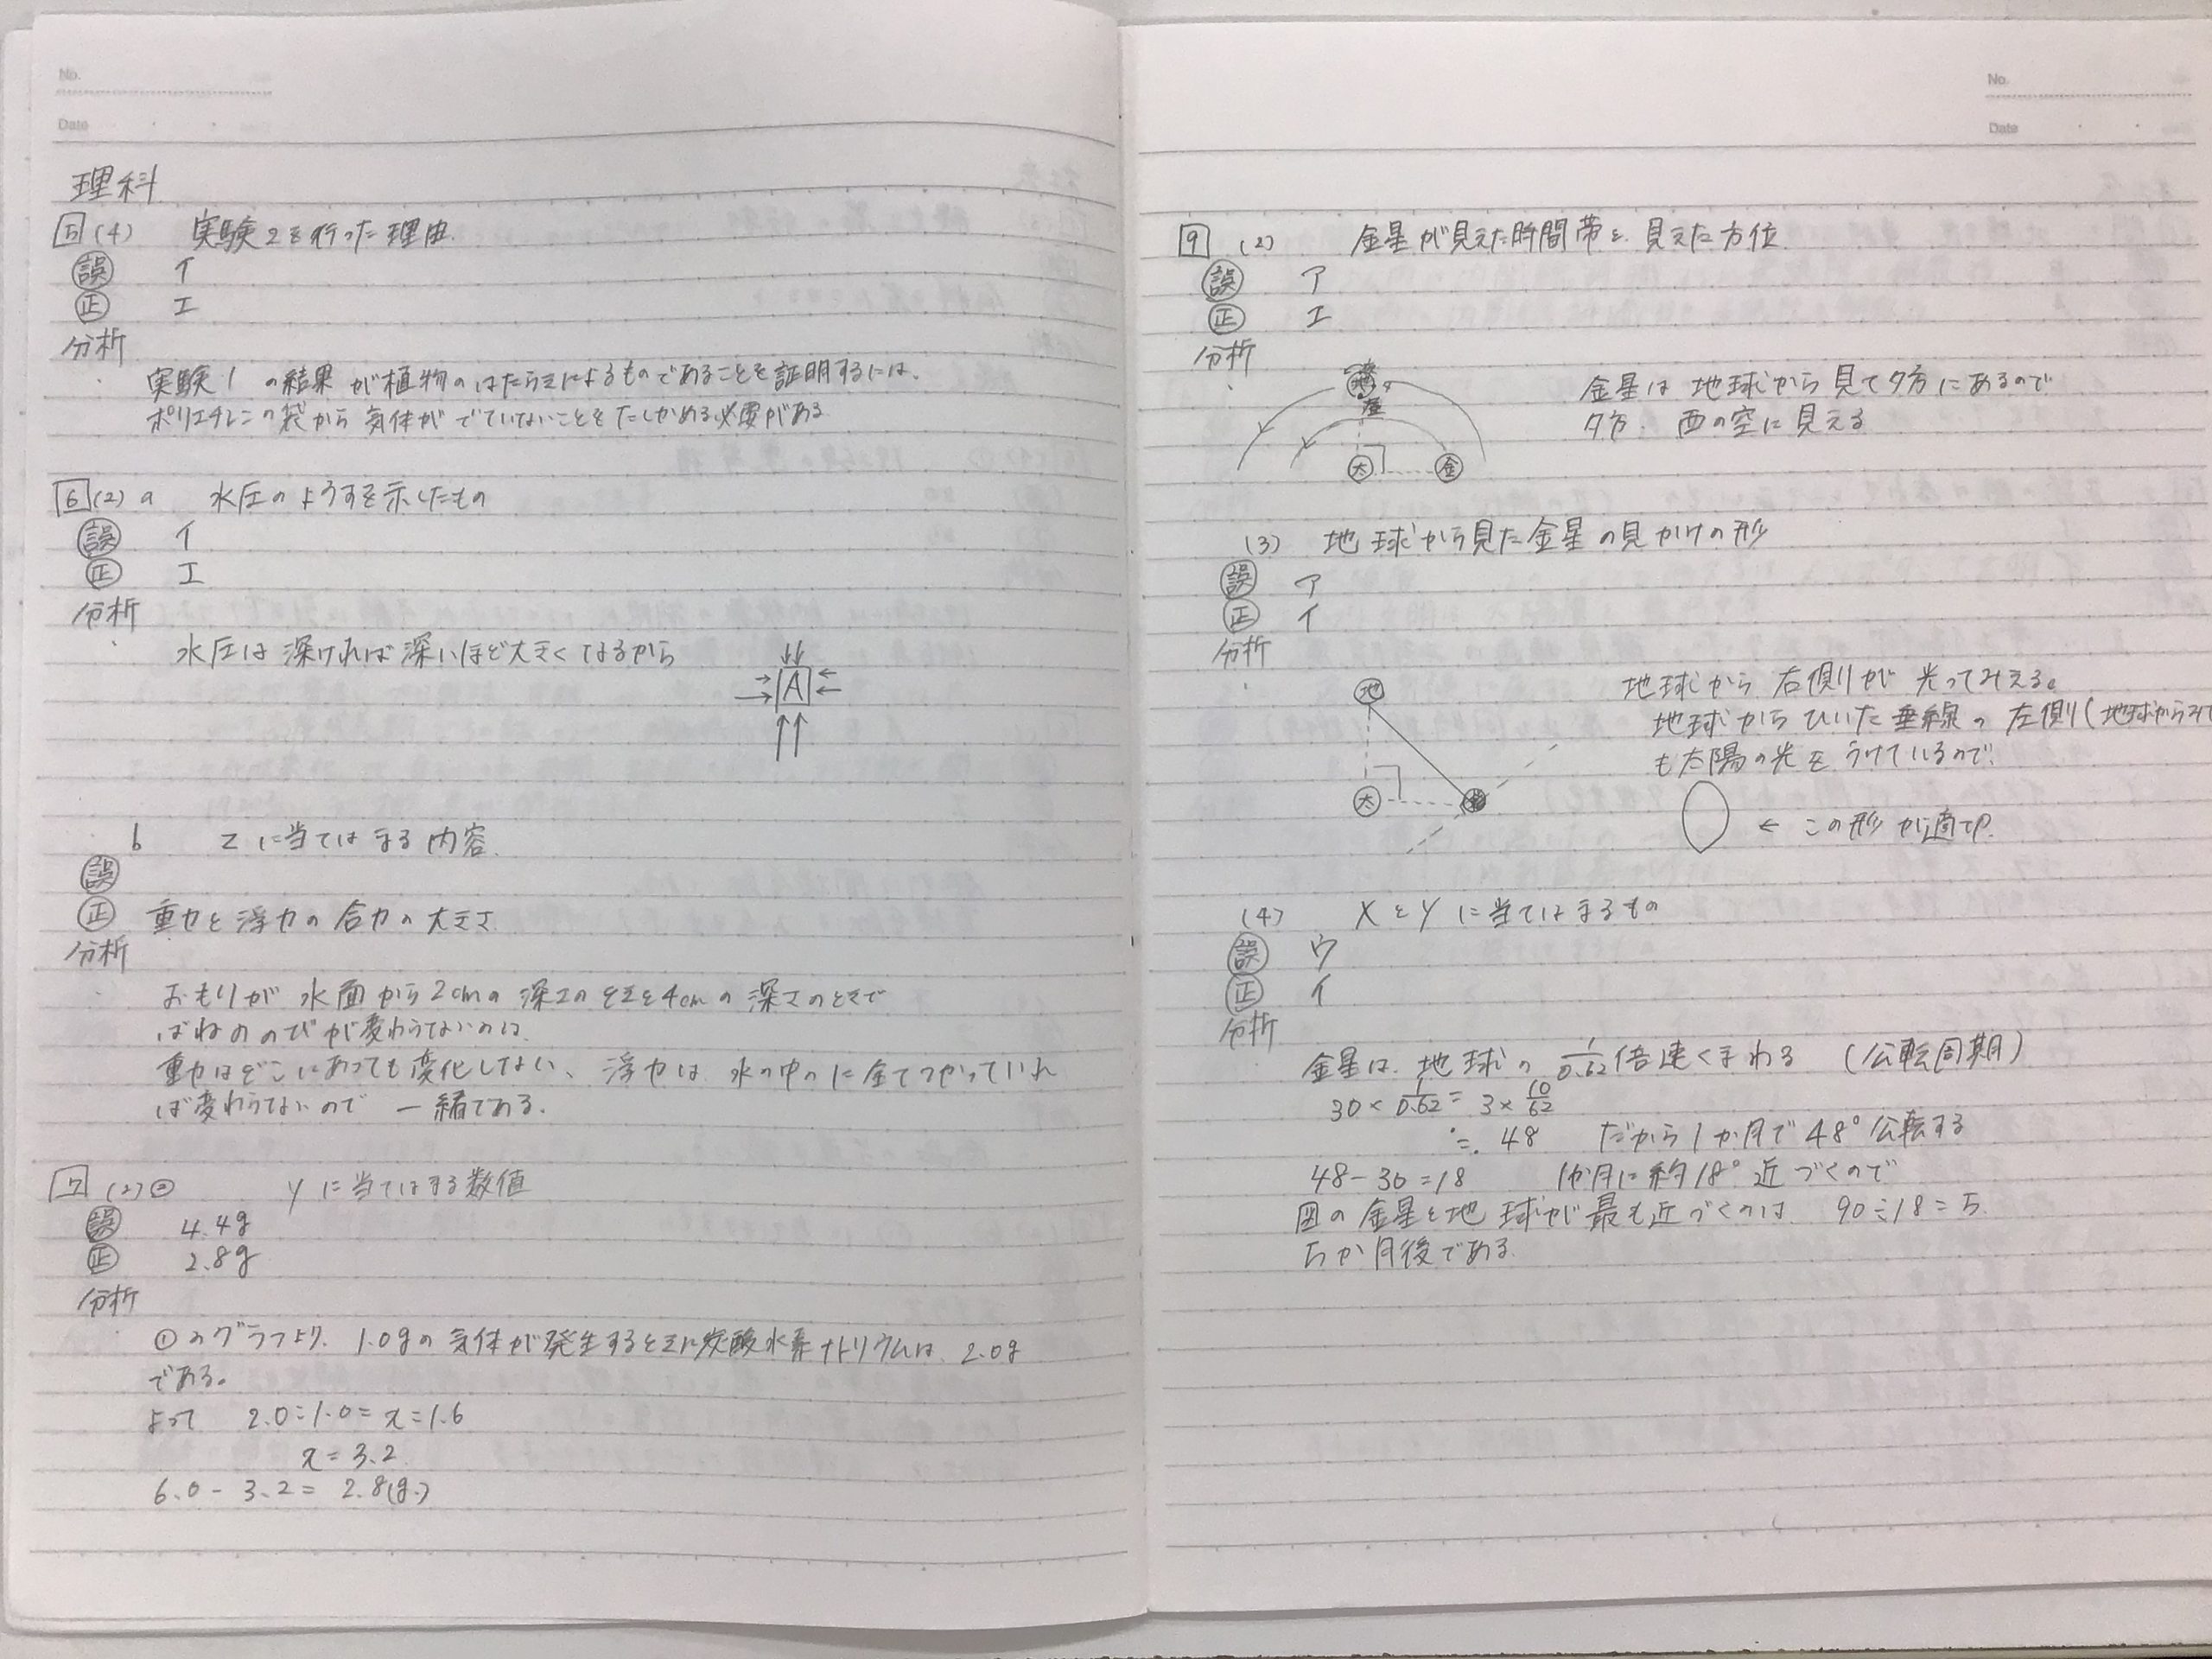 No.
Date
理科
5 (4) 実験2を行った理由.
誤 イ
正 エ
分析
実験1の結果が植物のはたらきによるものであることを証明するには、
ポリエチレンの袋から気体がでていないことをたしかめる必要がある
6 (2) a 水圧のようすを示したもの
誤 イ
正 エ
分析
水圧は深ければ深いほど大きくなるから
A
b Zに当てはまる内容.
誤
正 重力と浮力の合力の大きさ
分析
おもりが水面から2cmの深さのときと4cmの深さのときで
ばねののびが変わらないのは、
重力はどこにあっても変化しない、浮力は水の中のに全てつかっていれ
ば変わらないので一緒である.
7 (2)② Yに当てはまる数値
誤 4.4g
正 2.8g
分析
①のグラフより、1.0gの気体が発生するときに炭酸水素ナトリウムは2.0g
である。
よって 2.0:1.0=x:1.6
x=3.2
6.0-3.2=2.8(g.)
No.
Date
9 (2) 金星が見えた時間帯と、見えた方位
誤 ア
正 エ
分析
地 夕
太 金
金星は地球から見て夕方にあるので
夕方、西の空に見える
(3) 地球から見た金星の見かけの形
誤 ア
正 イ
分析
地
太
地球から右側が光ってみえる。
地球からひいた垂線の左側(地球からみて
も太陽の光をうけているので、
← この形が適切.
(4) XとYに当てはまるもの
誤 ウ
正 イ
分析
金星は、地球の1/0.62倍速くまわる (公転周期)
30×1/0.62=3×10/62
≒48 だから1か月で48°公転する
48-30=18 1か月に約18°近づくので
図の金星と地球が最も近づくのは 90÷18=5
5か月後である.